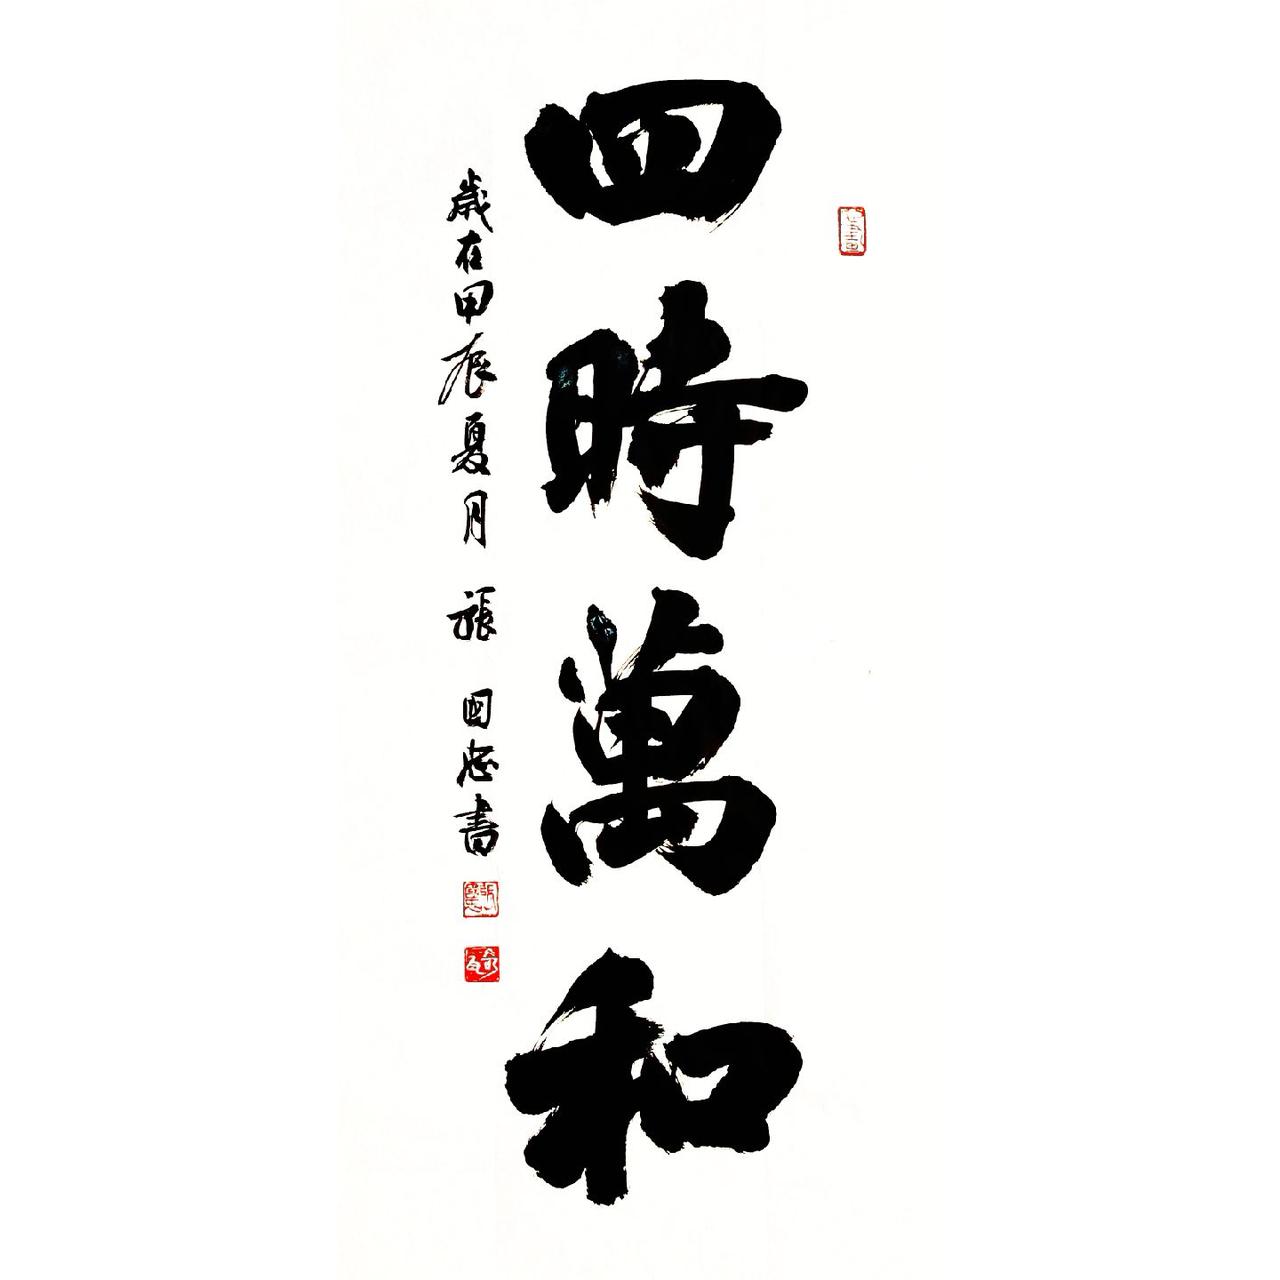 四時萬和
歲在甲辰夏月 張國忠書